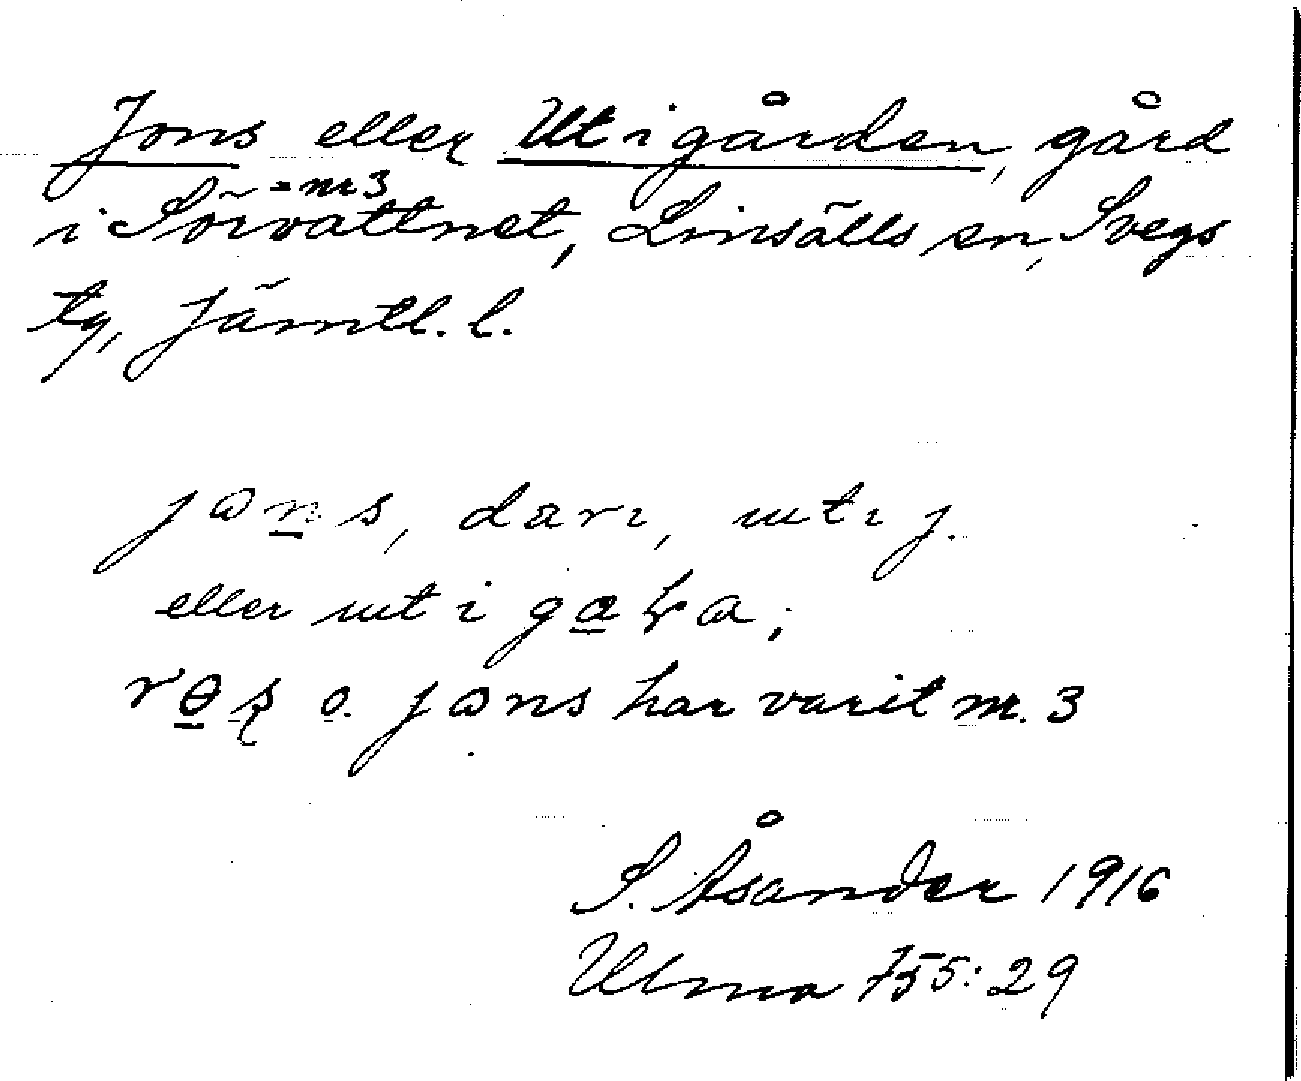 Jons eller Ut i gården, gård
= nr 3
i Sörvattnet, Linsälls sn, Svegs
tg, Jämtl. l.
jɷns, dari, ut i j.
eller ut i ga
rɵs o. jɷns har varit nr. 3
S. Åsander 1916
Ulma 755:29